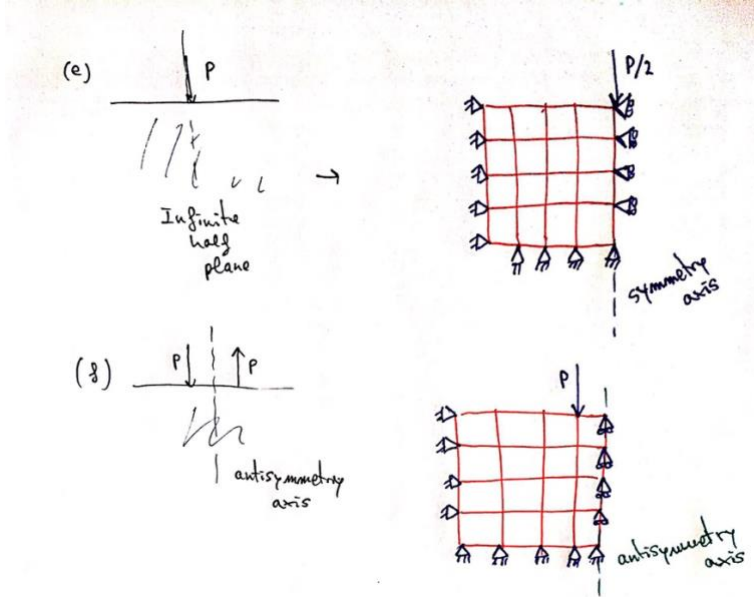 (e)
P
Infinite
half
plane
P/2
symmetry
axis
(f)
P
P
antisymmetry
axis
P
antisymmetry
axis